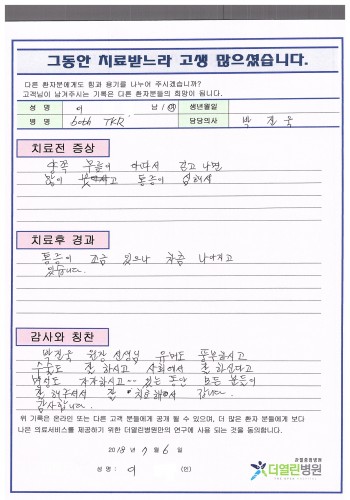 그동안 치료받느라 고생 많으셨습니다.
다른 환자분에게도 힘과 용기를 나누어 주시겠습니까?
고객님이 남겨주시는 기록은 다른 환자분들의 희망이 됩니다.
성 명 이 남 / 여 생년월일
병 명 both TKR 담당의사 박진욱
치료전 증상
양쪽 무릎이 아파서 걷고 나면
많이 붓고 통증이 심해서
치료후 경과
통증이 조금 있으나 차츰 나아지고
있습니다.
감사와 칭찬
박진욱 원장 선생님 유머도 풍부하시고
수술도 잘 하시고 사회에서 잘 하신다고
자자하시고 있는 동안 모든 분들이
잘 해주셔서 잘 치료해서 갑니다.
감사합니다.
위 기록은 온라인 또는 다른 고객 분들에게 공개 될 수 있으며, 더 많은 환자 분들에게 보다
나은 의료서비스를 제공하기 위한 더열린병원만의 연구에 사용 되는 것을 동의합니다.
2018 년 7 월 6 일
성 명 : 이 (인)
관절중점병원
더열린병원
THE OPEN HOSPITAL